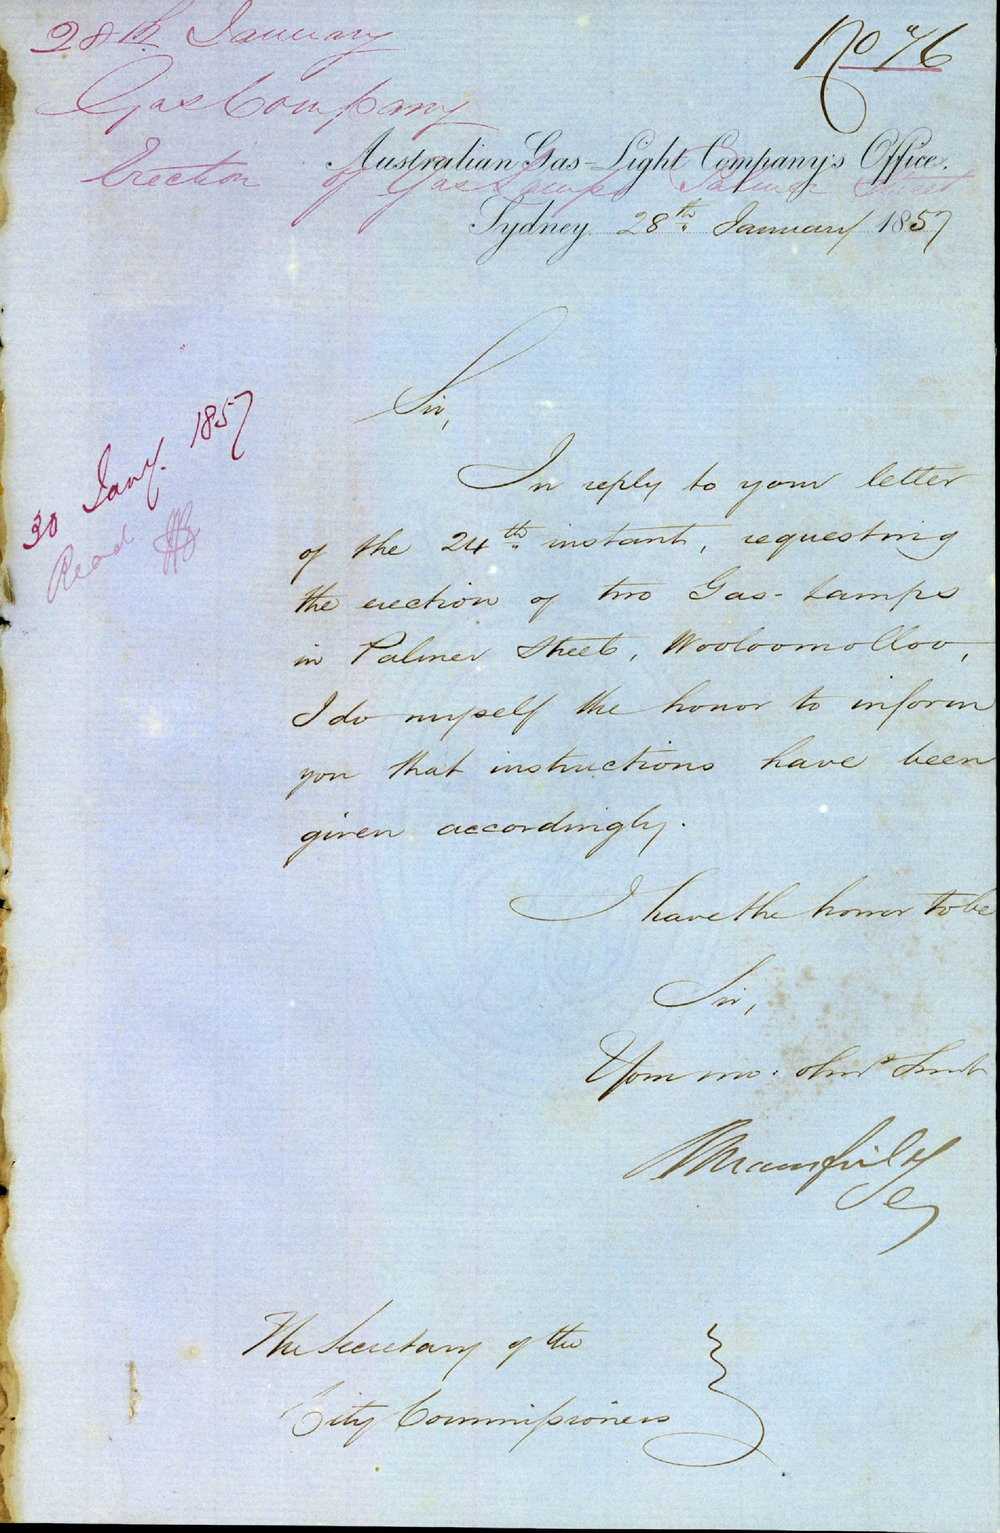 28th January
No 76
Gas Company
Australian Gas-Light Company's Office.
Erection of Gas Lamps Palmer Street
Sydney. 28th January 1857
Sir,
30 Jany. 1857
Read
In reply to your letter
of the 24th instant, requesting
the erection of two Gas-Lamps
in Palmer Street, Wooloomolloo,
I do myself the honor to inform
you that instructions have been
given accordingly.
I have the honor to be
Sir,
Your mo: obt Servt
Mansfield
The Secretary of the
City Commissioners